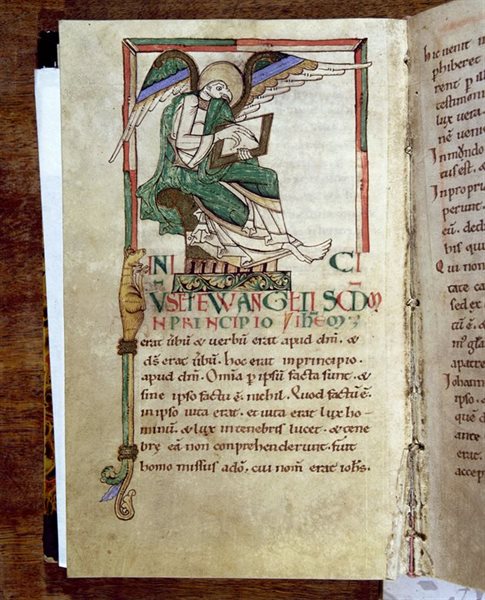 INI CI
EWANGELII SCDM̄
NPRINCIPIO
erat ūbū & verbū erat apud dm̄. &
ds̄ erat ūbū. hoc erat inprincipio.
apud dm̄. Om̄ia p ipsū facta sunt. &
sine ipso factū ē nichil. Quod factū ē
inipso uita erat. et uita erat lux ho-
minū. & lux intenebris lucet. & tene
bre eā non comprehenderunt. fuit
homo missus adō. cui nom̄ erat iohs̄.
hic uenit in
phiberet
rent p ill
testimoni
lux uera.
ne ueni
Inmundo
tus est. &
Inpropri
perunt.
eū. dedi
bis qui
Qui non
tate ca
sed ex
tū ē. &
apatre
Johann
ipso. &
que d
ante
erat.
accep